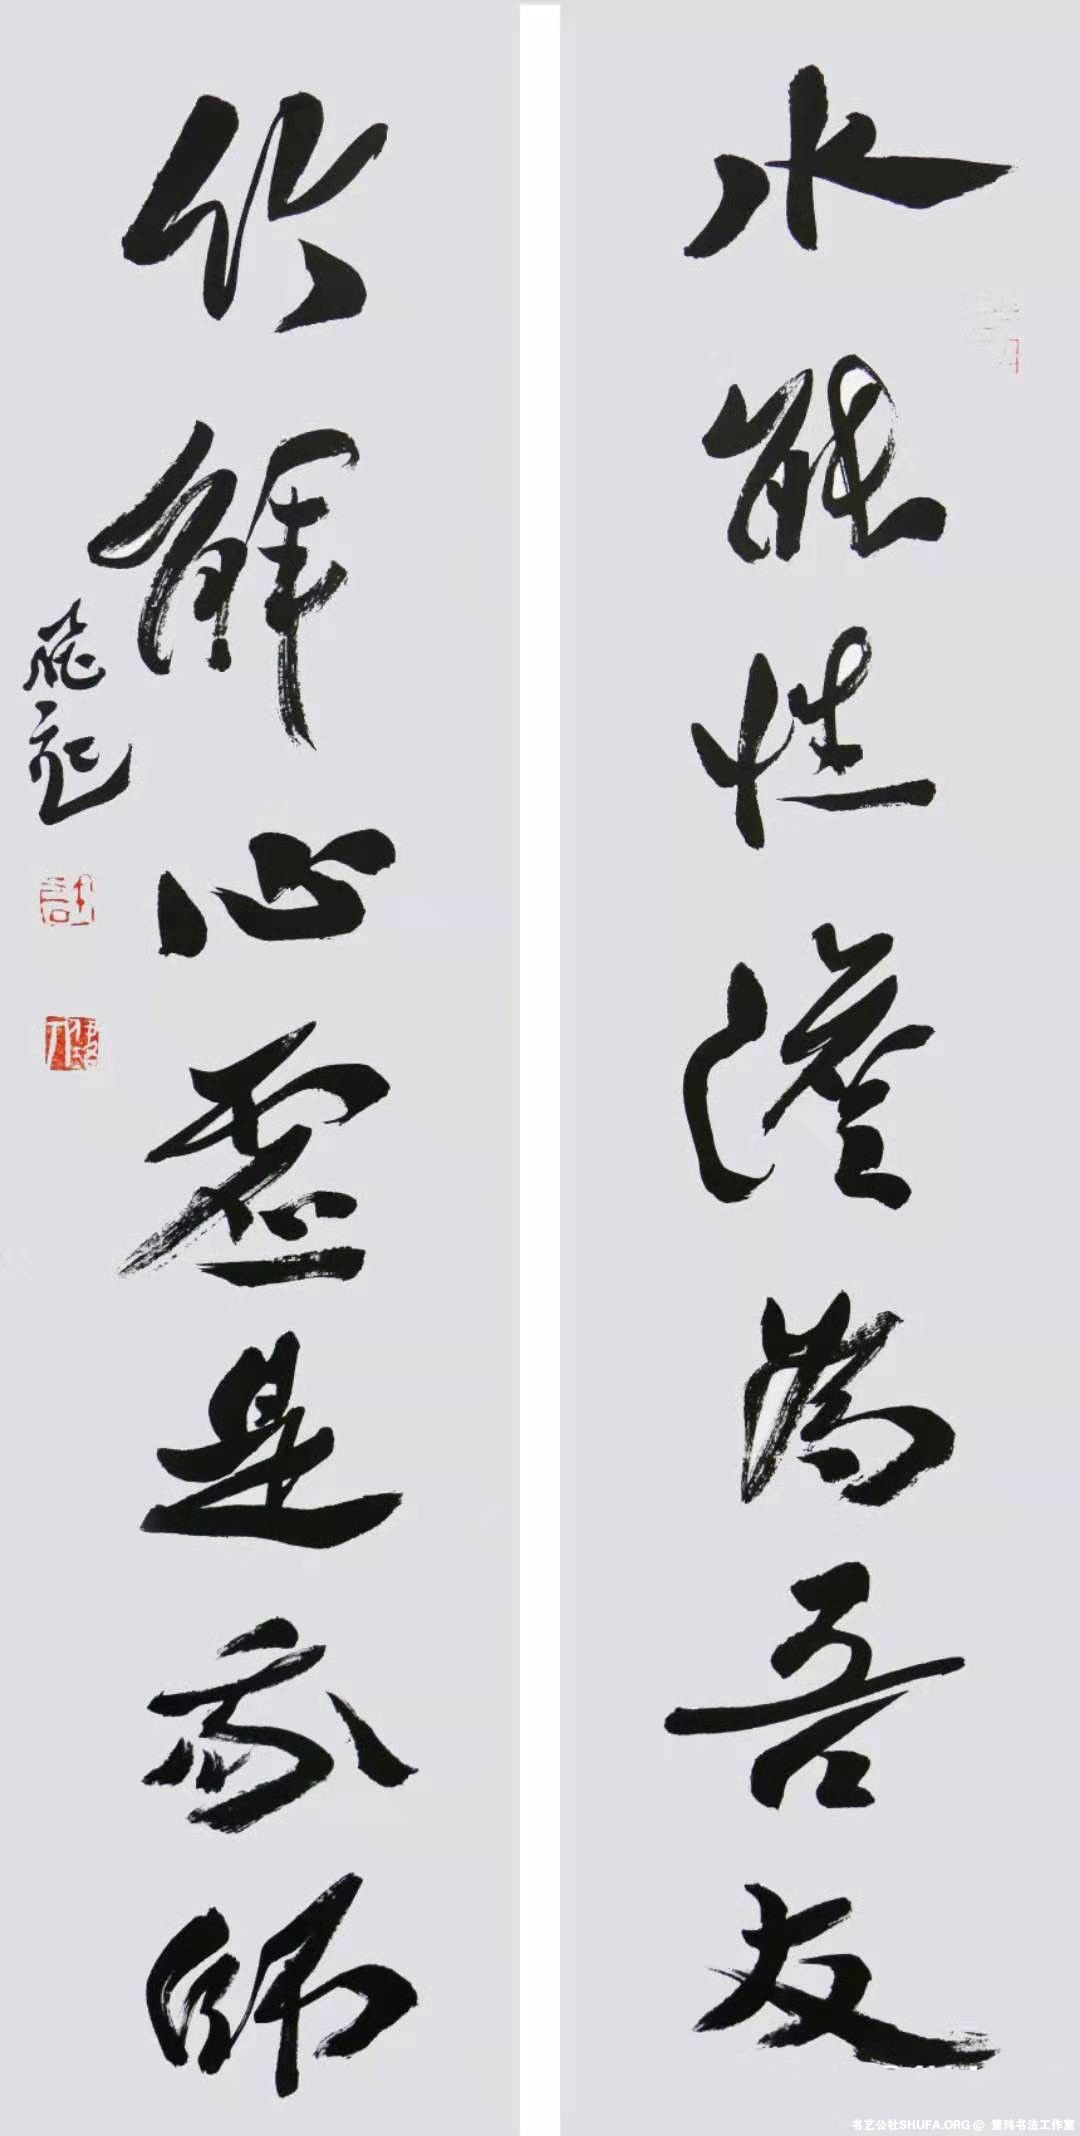 水能性澹为吾友
竹解心虚是我师
书艺公社SHUFA.ORG @ 董玮书法工作室